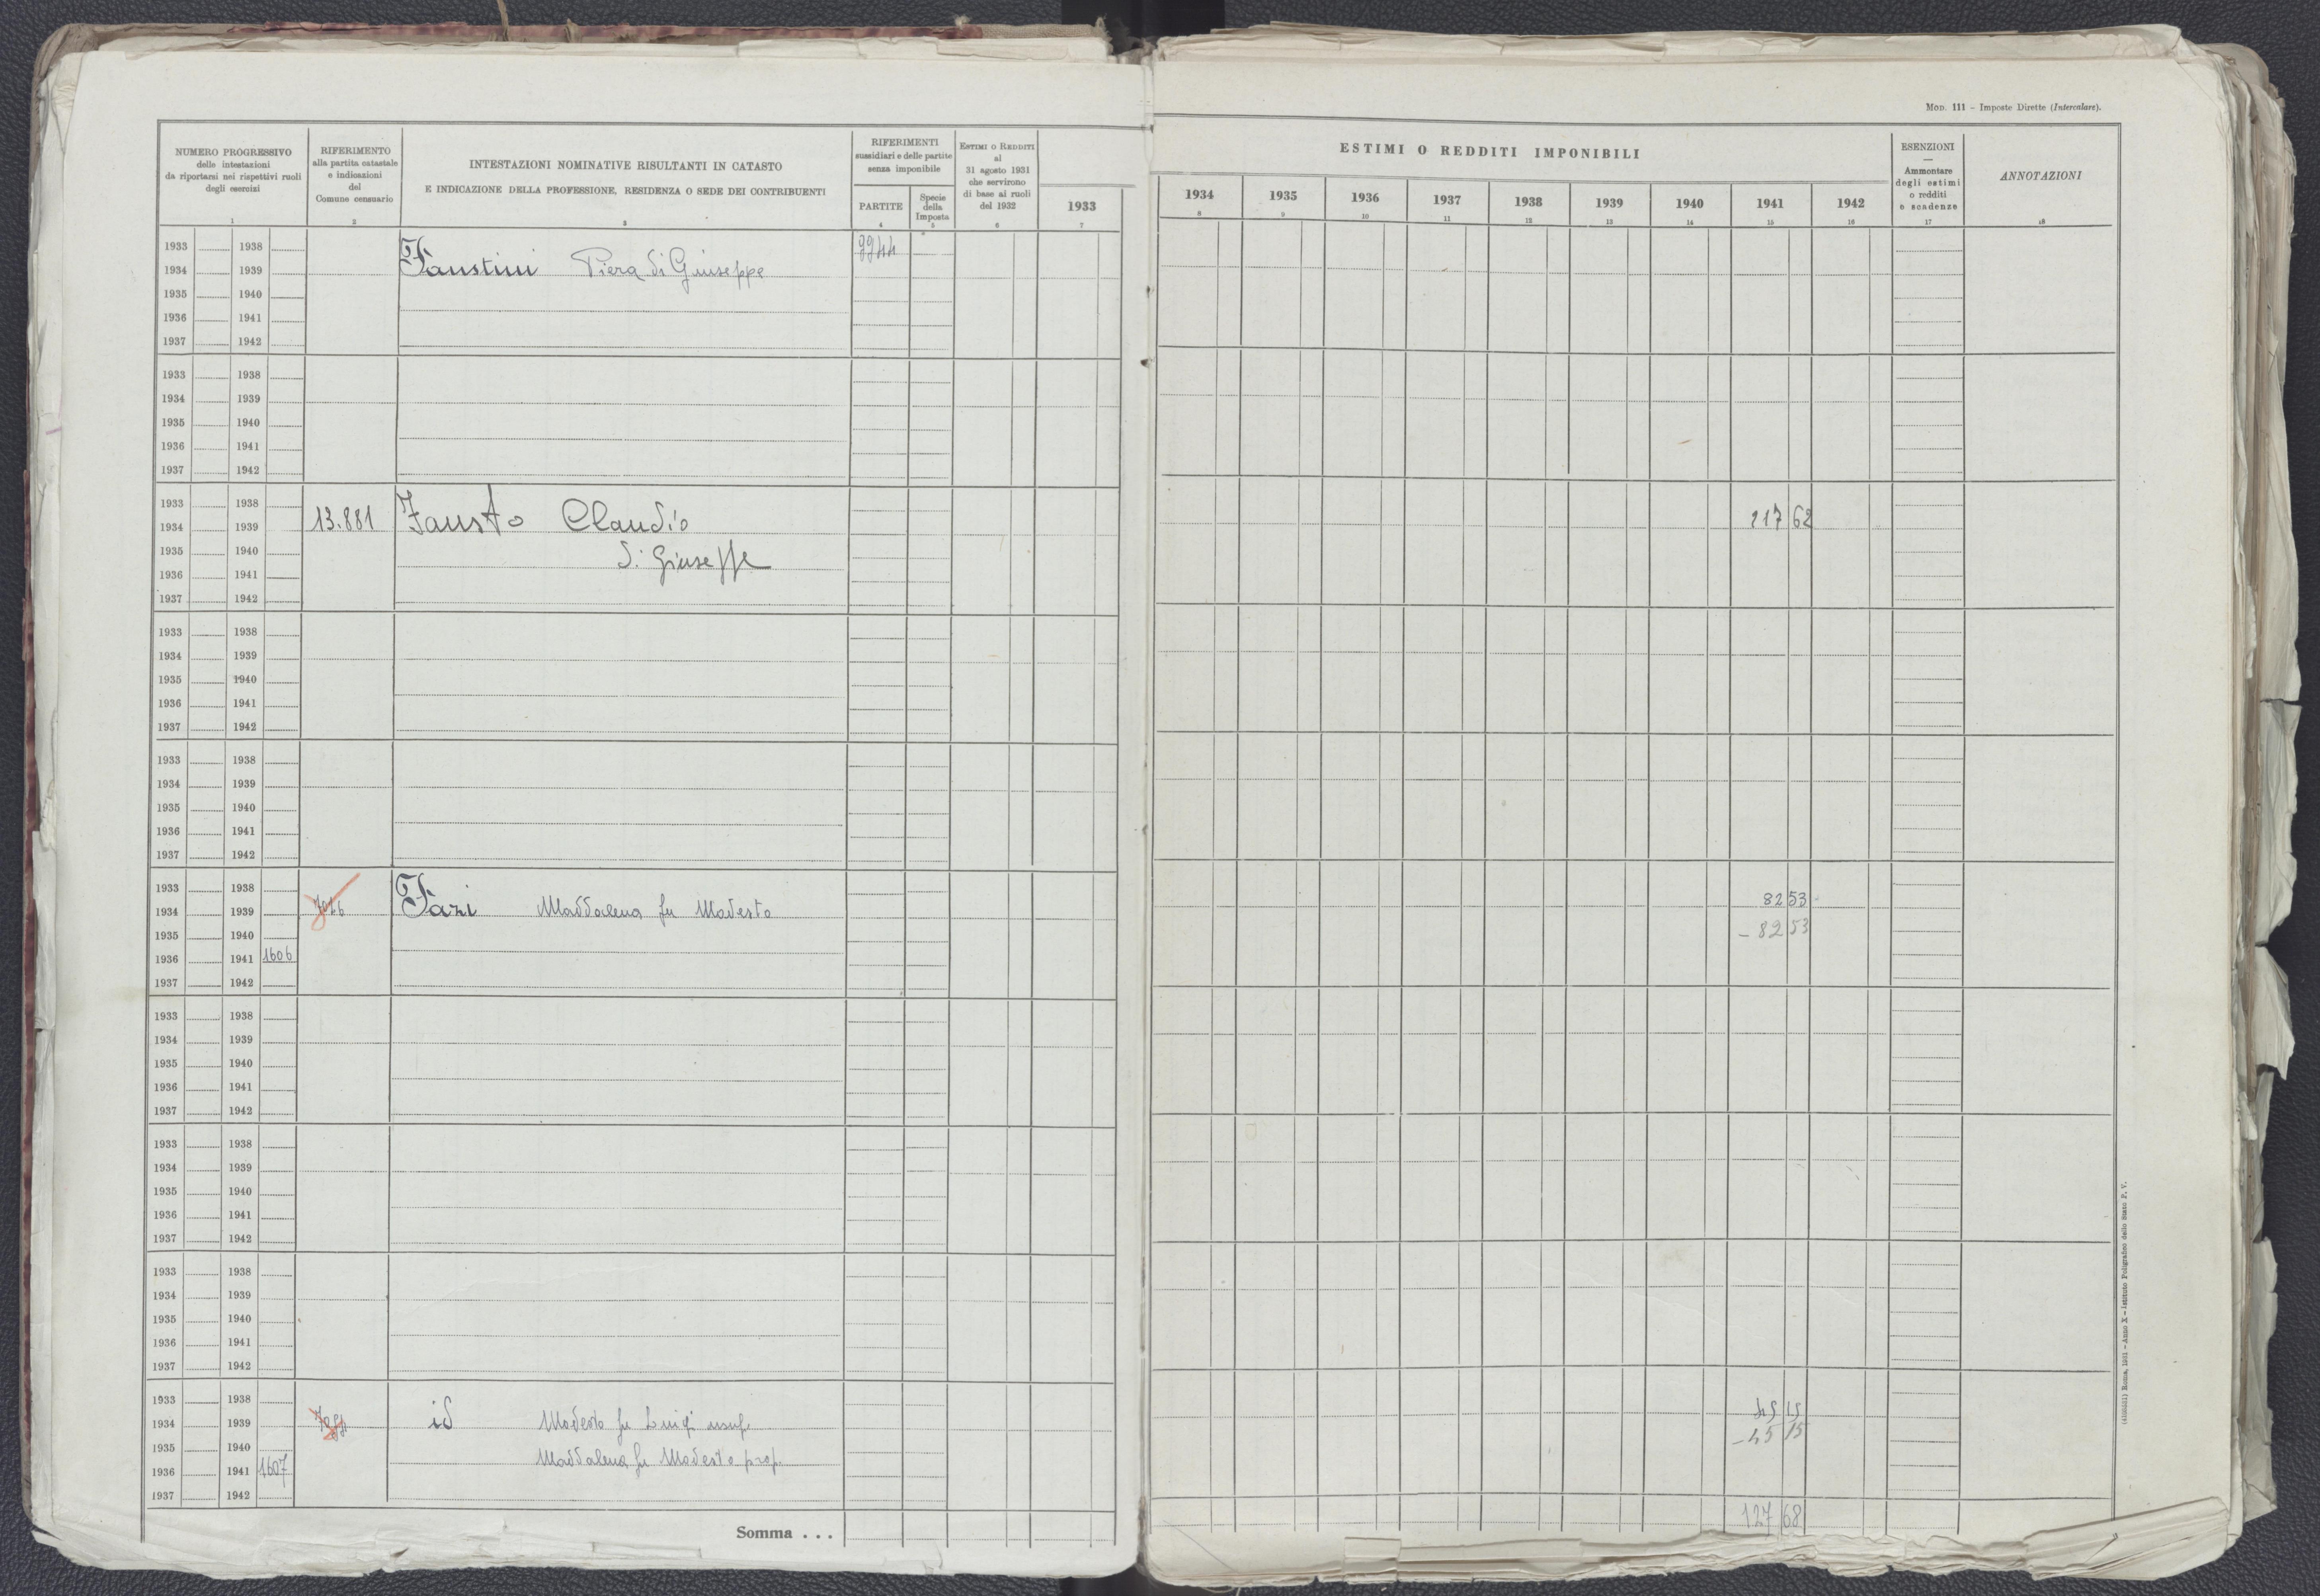 Mod. 111 - Imposte Dirette (Intercalare).
NUMERO PROGRESSIVO
delle intestazioni
da riportarsi nei rispettivi ruoli
degli esercizi
1
RIFERIMENTO
alla partita catastale
e indicazioni
del
Comune censuario
2
INTESTAZIONI NOMINATIVE RISULTANTI IN CATASTO
E INDICAZIONE DELLA PROFESSIONE, RESIDENZA O SEDE DEI CONTRIBUENTI
3
RIFERIMENTI
sussidiari e delle partite
senza imponibile
PARTITE
4
Specie
della
Imposta
5
Estimi o Redditi
al
31 agosto 1931
che servirono
di base ai ruoli
del 1932
6
1933
7
ESTIMI O REDDITI IMPONIBILI
1934 1935 1936 1937 1938 1939 1940 1941 1942
8 9 10 11 12 13 14 15 16
ESENZIONI
—
Ammontare
degli estimi
o redditi
e scadenze
17
ANNOTAZIONI
18
1933 1938
1934 1939 Faustini Piera di Giuseppe 9944
1935 1940
1936 1941
1937 1942
1933 1938
1934 1939
1935 1940
1936 1941
1937 1942
1933 1938
1934 1939 13.881 Fausto Claudio 217 62
1935 1940 di Giuseppe
1936 1941
1937 1942
1933 1938
1934 1939
1935 1940
1936 1941
1937 1942
1933 1938
1934 1939
1935 1940
1936 1941
1937 1942
1933 1938
1934 1939 Fazi Maddalena fu Modesto 82 53
1935 1940 - 82 53
1936 1941 1606
1937 1942
1933 1938
1934 1939
1935 1940
1936 1941
1937 1942
1933 1938
1934 1939
1935 1940
1936 1941
1937 1942
1933 1938
1934 1939
1935 1940
1936 1941
1937 1942
1933 1938
1934 1939 id Modesto fu Luigi usuf. 45 15
1935 1940 - 45 15
1936 1941 1607 Maddalena fu Modesto prop.
1937 1942
Somma . . . 127 68
Roma, 1931 - Anno X - Istituto Poligrafico dello Stato P. V.